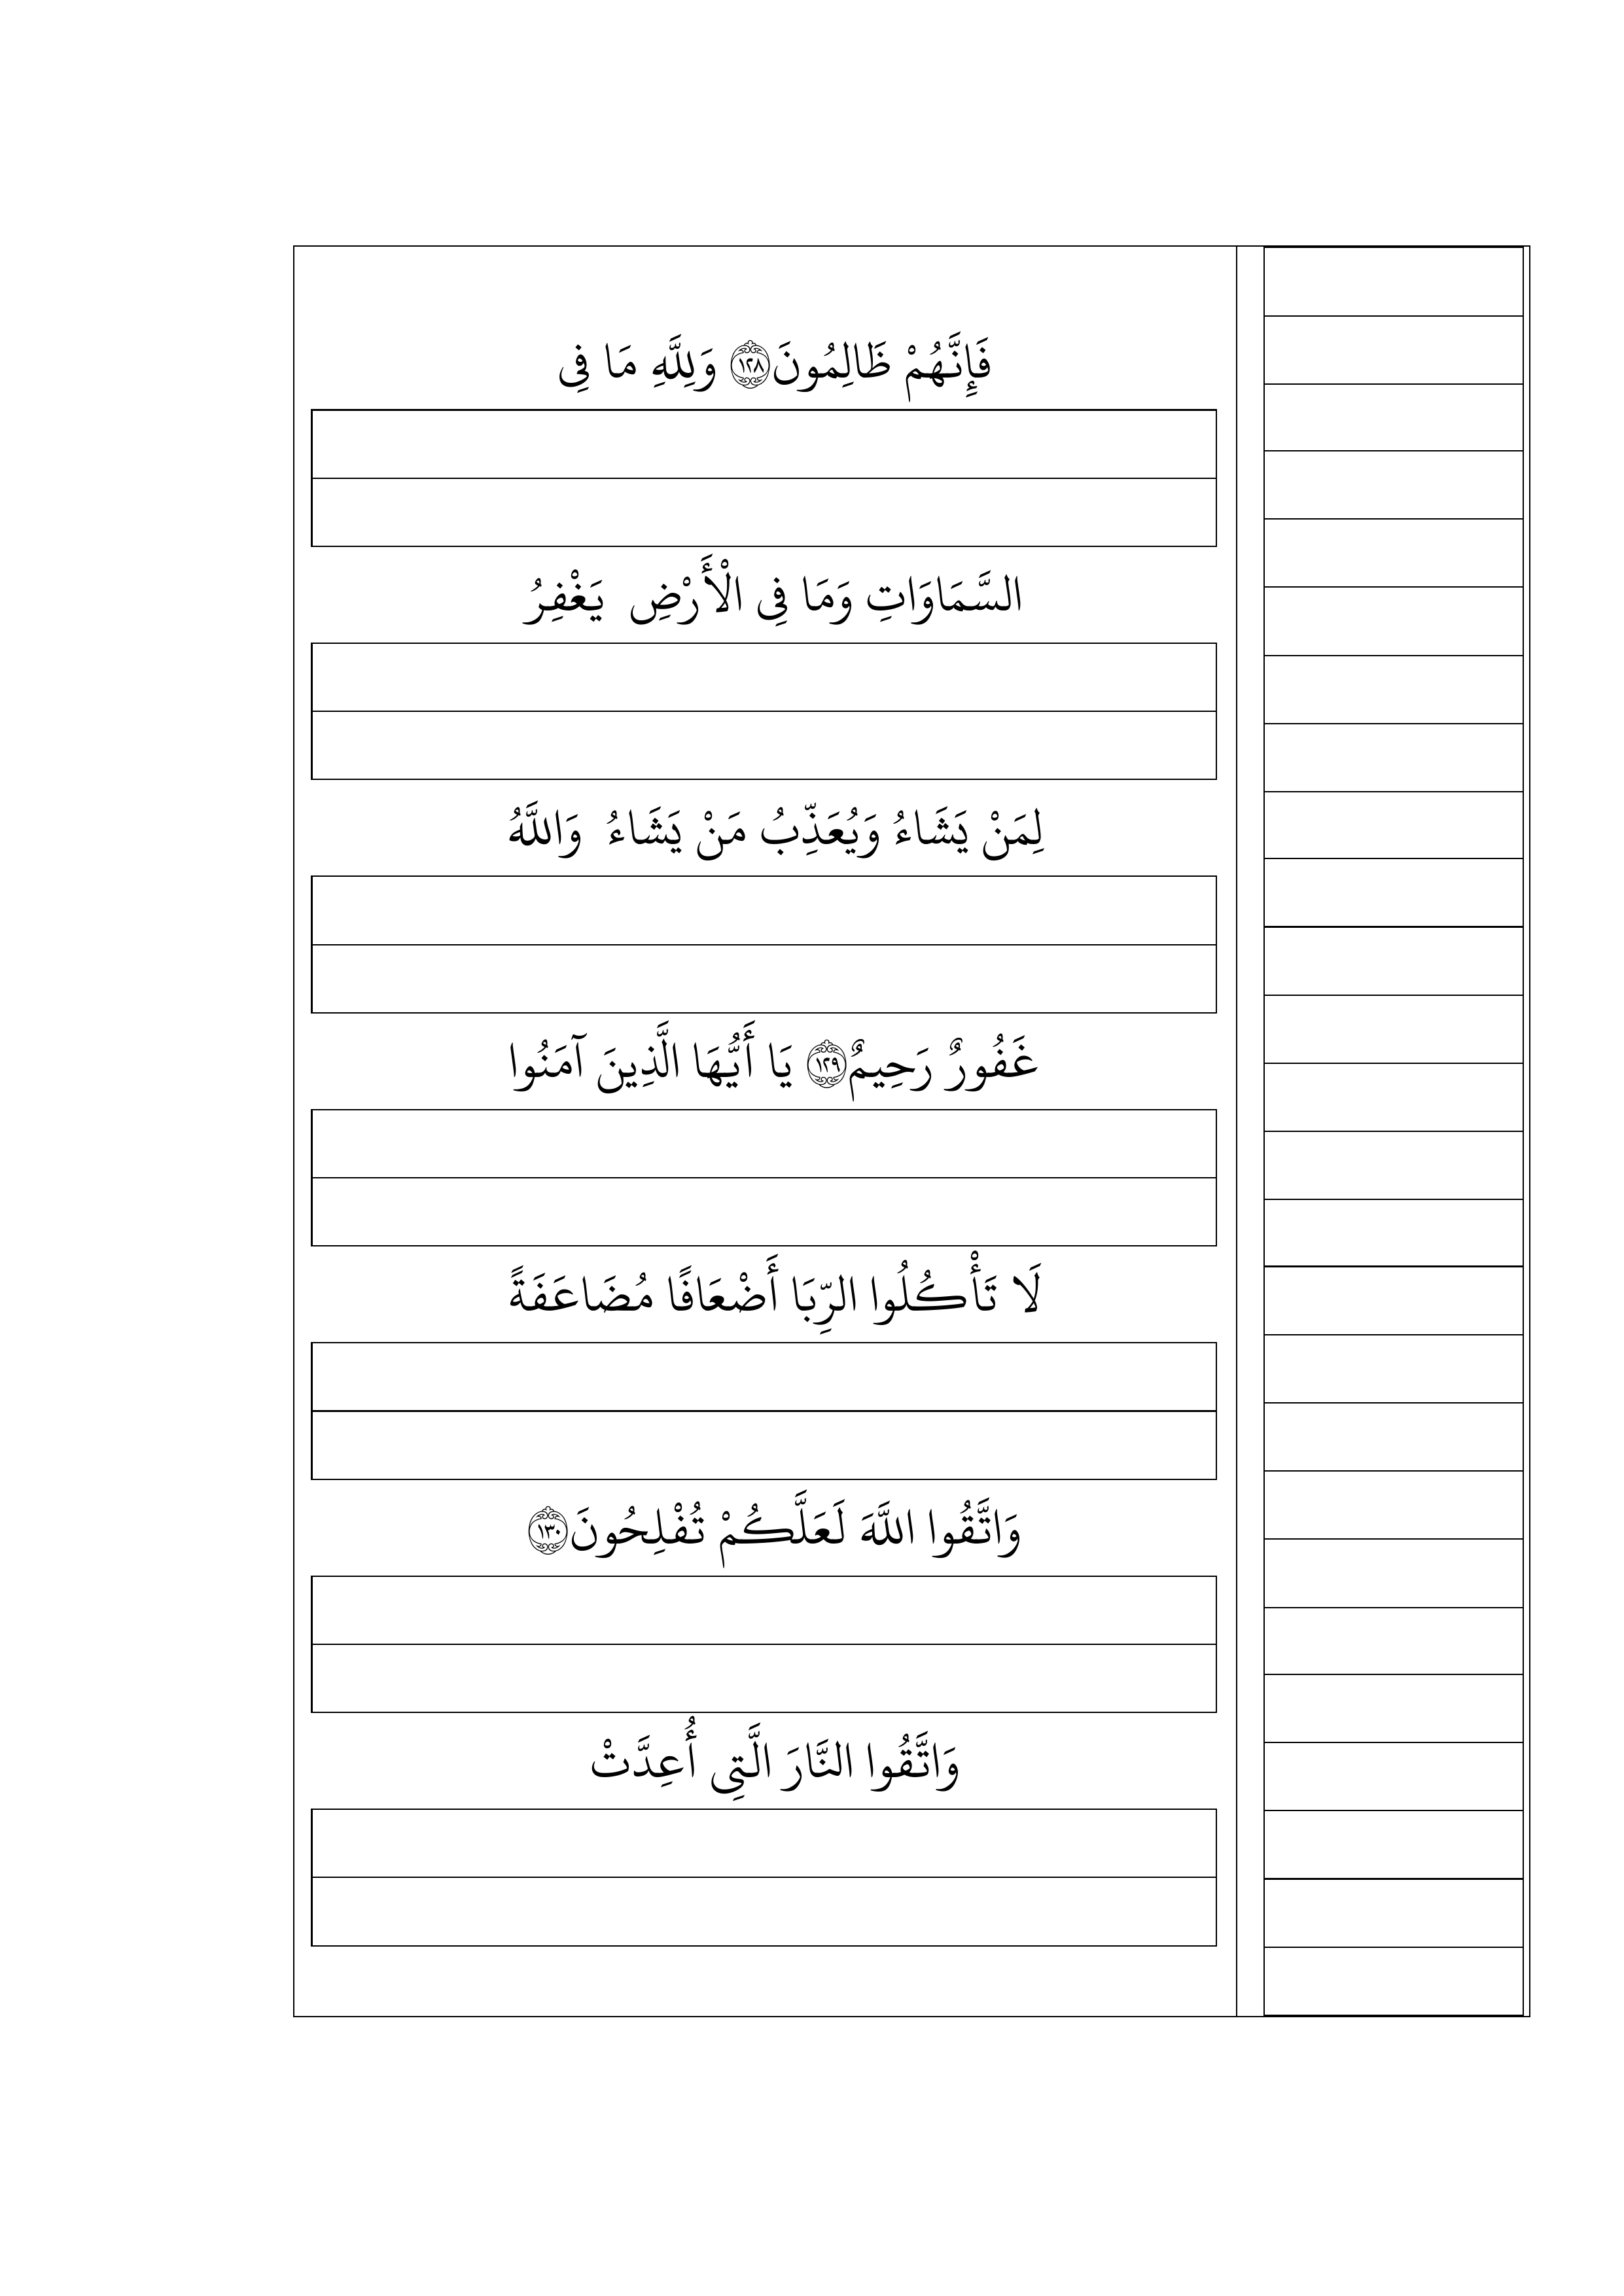 فَإِنَّهُمْ ظَالِمُونَ ﴿١٢٨﴾ وَلِلَّهِ مَا فِي
السَّمَاوَاتِ وَمَا فِي الْأَرْضِ يَغْفِرُ
لِمَنْ يَشَاءُ وَيُعَذِّبُ مَنْ يَشَاءُ وَاللَّهُ
غَفُورٌ رَحِيمٌ ﴿١٢٩﴾ يَا أَيُّهَا الَّذِينَ آمَنُوا
لَا تَأْكُلُوا الرِّبَا أَضْعَافًا مُضَاعَفَةً
وَاتَّقُوا اللَّهَ لَعَلَّكُمْ تُفْلِحُونَ ﴿١٣٠﴾
وَاتَّقُوا النَّارَ الَّتِي أُعِدَّتْ